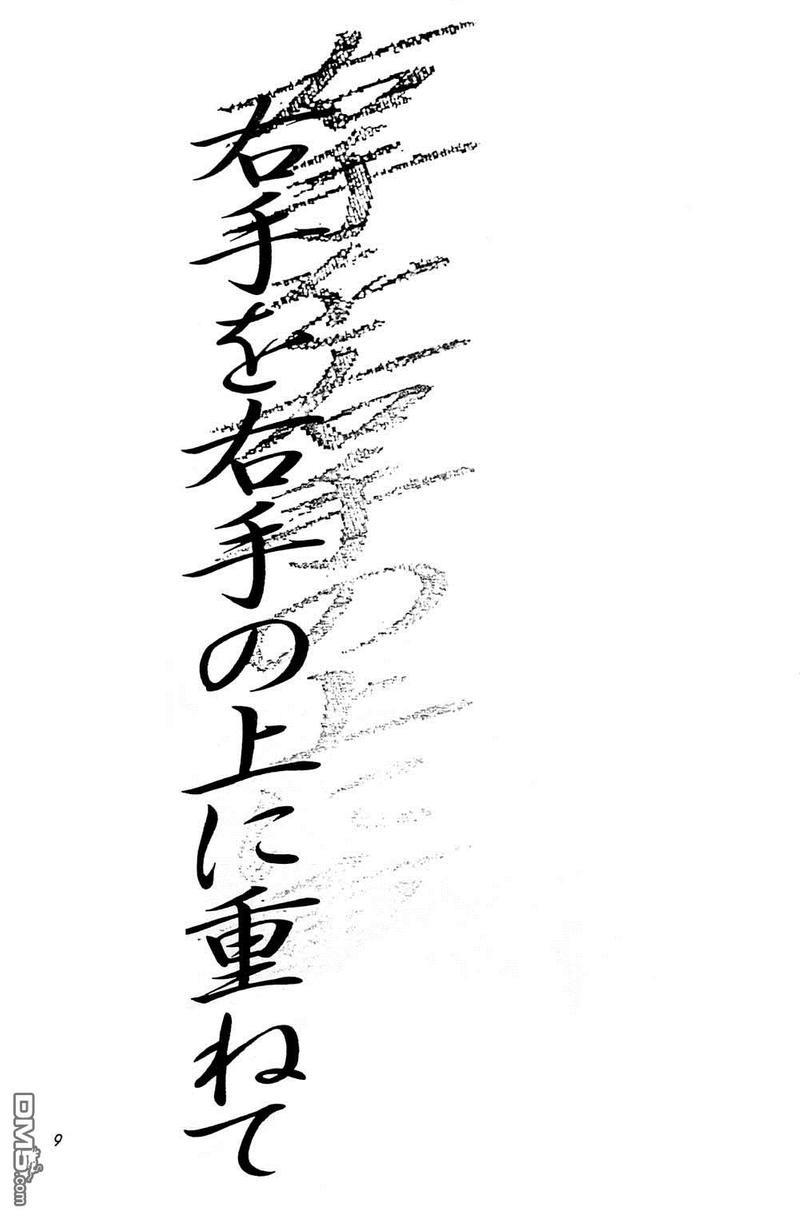 右手を右手の上に重ねて
9
DM5.com